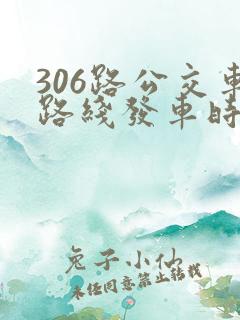 306路公交車
路綫發車時
兔子小仙
未经同意禁止转载